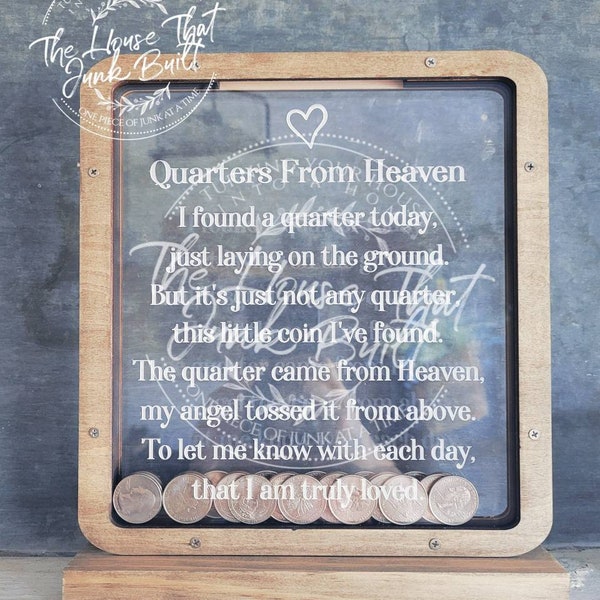 The House That
Junk Built
ONE PIECE OF JUNK AT A TIME
Quarters From Heaven
I found a quarter today,
just laying on the ground.
But it's just not any quarter,
this little coin I've found.
The quarter came from Heaven,
my angel tossed it from above.
To let me know with each day,
that I am truly loved.
TURNING YOUR HOUSE
INTO A HOME
The House That
Junk Built
ONE PIECE OF JUNK AT A TIME